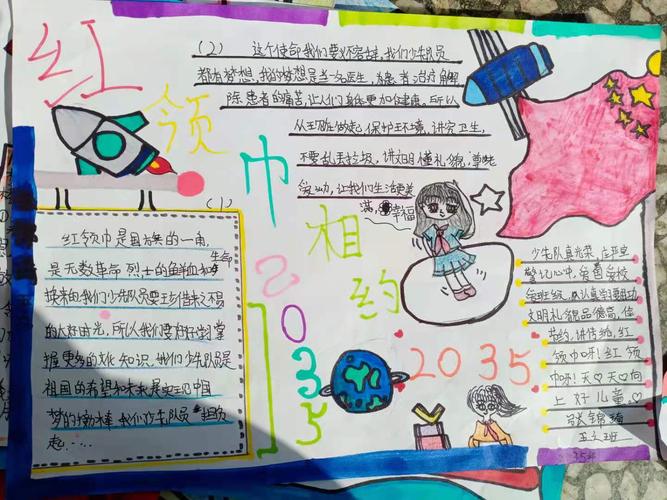 红领巾相约
2035
2035
(1)
红领巾是国旗的一角,
是无数革命烈士的鲜血和生命
换来的我们少先队员要珍惜来之不易
的大好时光,所以我们要好好学习掌
握更多的文化知识,我们少先队员是
祖国的希望和未来是实现中国
梦的接棒我们少先队员担负
起……
(2) 这个使命我们要义不容辞,我们少先队员
都有梦想,我的梦想是当一名医生,为患者治疗解
除患者的痛苦,让人们身体更加健康,所以
从现在做起,保护环境,讲究卫生,
不要乱丢垃圾,讲文明懂礼貌,尊
劳动,让我们生活更美
满,幸福
少先队真光荣,
心中,爱
每班级,认真学习
文明礼貌品德高,
节约,讲传统,红
领巾呀!红领
巾呀!天天向
上好儿童。
张锦
五班